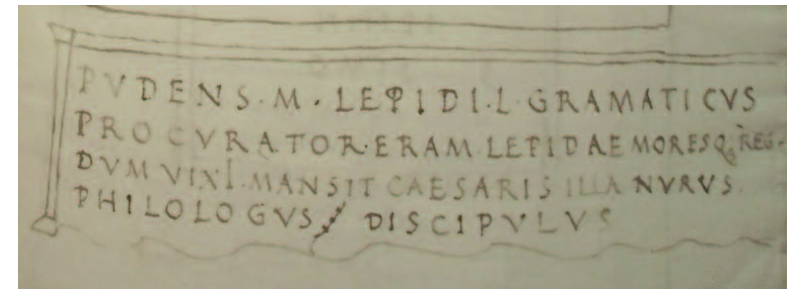 PVDENS · M · LEPIDI · L · GRAMATICVS
PROCVRATOR · ERAM · LEPIDAE MORESQ REG ·
DVM VIXI · MANSIT CAESARIS ILLA NVRVS ·
PHILOLOGVS DISCIPVLVS